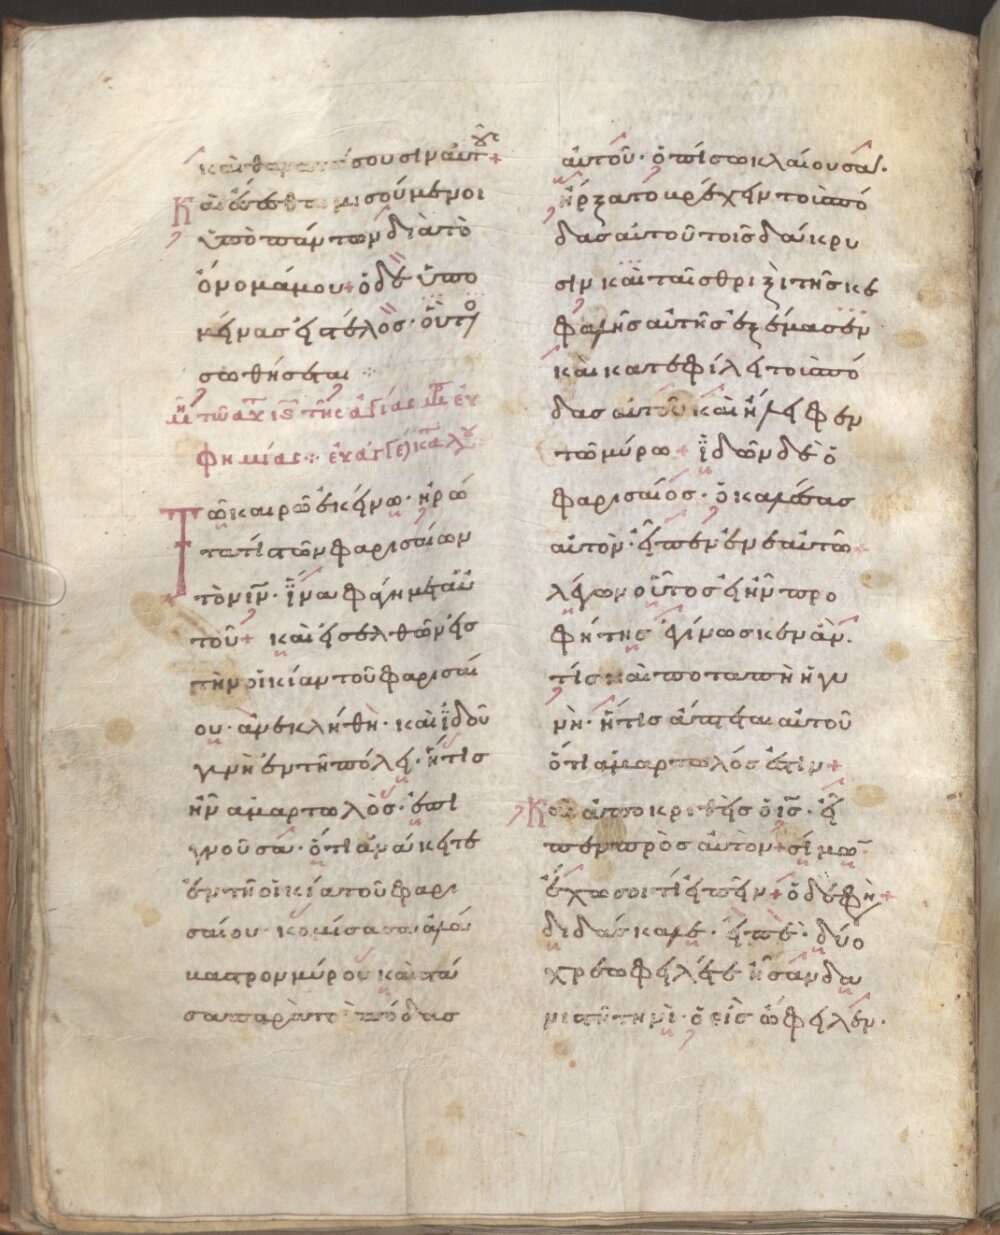 καὶ θανατώσουσιν αὐτους +
Καὶ ἔσεσθε μισούμενοι
ὑπὸ πάντων διὰ τὸ
ὄνομά μου + ὁ δὲ ὑπο
μείνας εἰς τέλος · οὗτο
σωθήσεται ⁘
μη τῶ αυτ ις της ἁγίας μρ ευ
φημίας ⁘ εὐαγγε κατα λου
Τῶ καιρῶ ἐκείνω · ἠρώ
τα τίς τῶν φαρισαίων
τὸν ιν · ἵνα φάγη μετ αὐ
τοῦ + καὶ εἰσελθὼν εἰς
τὴν οἰκίαν τοῦ φαρισαί
ου · ἀνεκλήθη · καὶ ἰδοὺ
γυνὴ ἐν τῆ πόλει · ἥτις
ἦν ἁμαρτωλὸς · ἐπι
γνοῦσα · ὅτι ἀνάκειτε
ἐν τῆ οἰκία τοῦ φαρι
σαίου · κομίσασα ἀλά
βαστρον μύρου καὶ στᾶ
σα παρὰ τὸ πόδας
αὐτοῦ · ὀπίσω κλαίουσα ·
ἤρξατο βρέχειν τοὺς πό
δας αὐτοῦ τοῖς δάκρυ
σιν καὶ ταῖς θριξὶ τῆς κε
φαλῆς αὐτῆς ἐξέμασσεν
καὶ κατεφίλει τοὺς πό
δας αὐτοῦ καὶ ἤλειφεν
τῶ μύρω + ἰδὼν δὲ ὁ
φαρισαῖος · ὁ καλέσας
αὐτὸν · εἶπεν ἐν ἑαυτῶ +
λέγων οὗτος εἰ ἦν προ
φήτης ἐγίνωσκεν ἂν ·
τίς καὶ ποταπὴ ἡ γυ
νὴ · ἥτις ἅπτεται αὐτοῦ
ὅτι ἁμαρτωλός ἐστιν +
Καὶ ἀποκριθεὶς ὁ ις · εἶ
πεν πρὸς αὐτὸν + σίμω
ἔχω σοι τί εἰπεῖν + ὁ δὲ φη +
διδάσκαλε · εἰπὲ · δύο
χρεωφειλέτε ἦσαν δα
νιστῆ τινὶ · ὁ εἷς ὤφειλεν ·